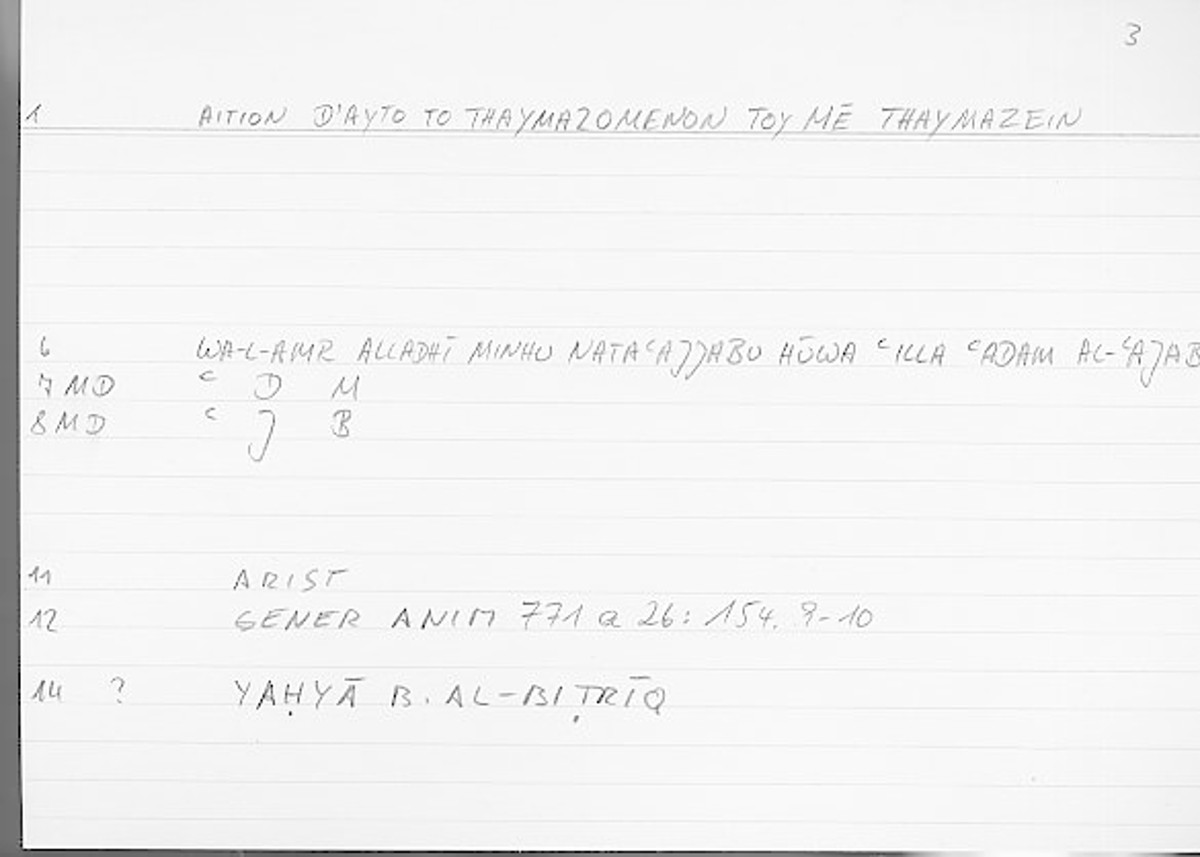 3
1 AITION D'AYTO TO THAYMAZOMENON TOY MĒ THAYMAZEIN
6 WA-L-AMR ALLADHĪ MINHU NATAʿAJJABU HŪWA ʿILLA ʿADAM AL-ʿAJAB
7 MD ʿ D M
8 MD ʿ J B
11 ARIST
12 GENER ANIM 771 a 26: 154. 9-10
14 ? YAḤYĀ B. AL-BIṬRĪQ